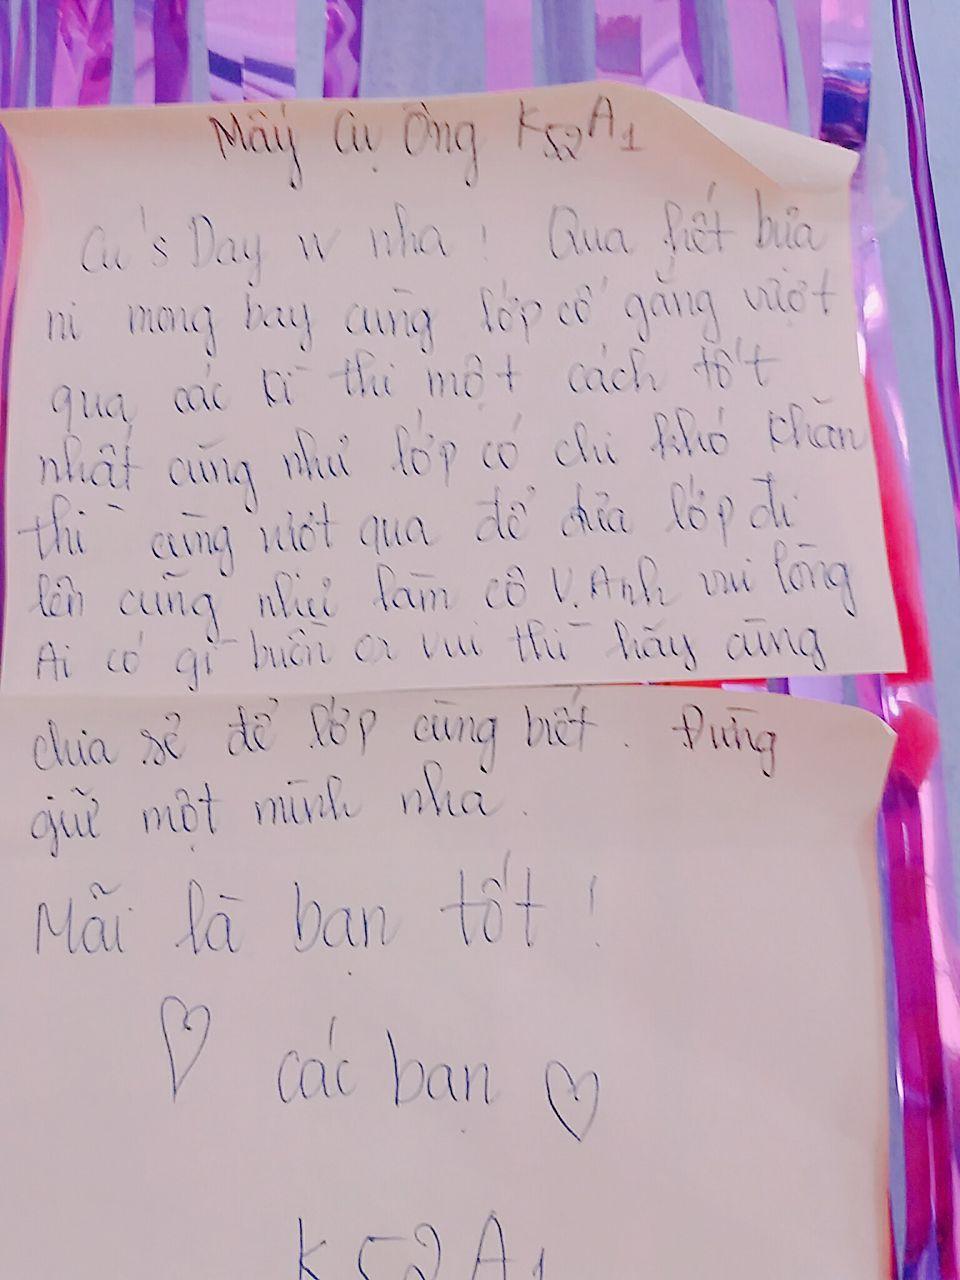 Mấy cụ ông K52A1
Cu's Day vv nha ! Qua hết bữa
ni mong bay cùng lớp cố gắng vượt
qua các kì thi một cách tốt
nhất cũng như lớp có chi khó khăn
thì cùng vượt qua để đưa lớp đi
lên cũng như làm cô V.Anh vui lòng
Ai có gì buồn or vui thì hãy cùng
chia sẻ để lớp cùng biết. Đừng
giữ một mình nha.
Mãi là bạn tốt !
các bạn
K52A1